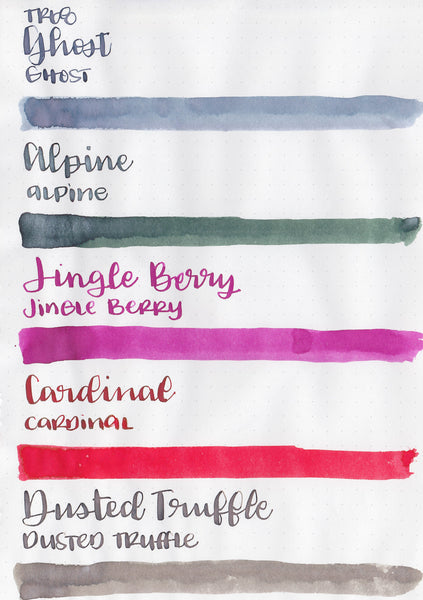 TR68
Ghost
GHOST
Alpine
ALPINE
Jingle Berry
JINGLE BERRY
Cardinal
CARDINAL
Dusted Truffle
DUSTED TRUFFLE